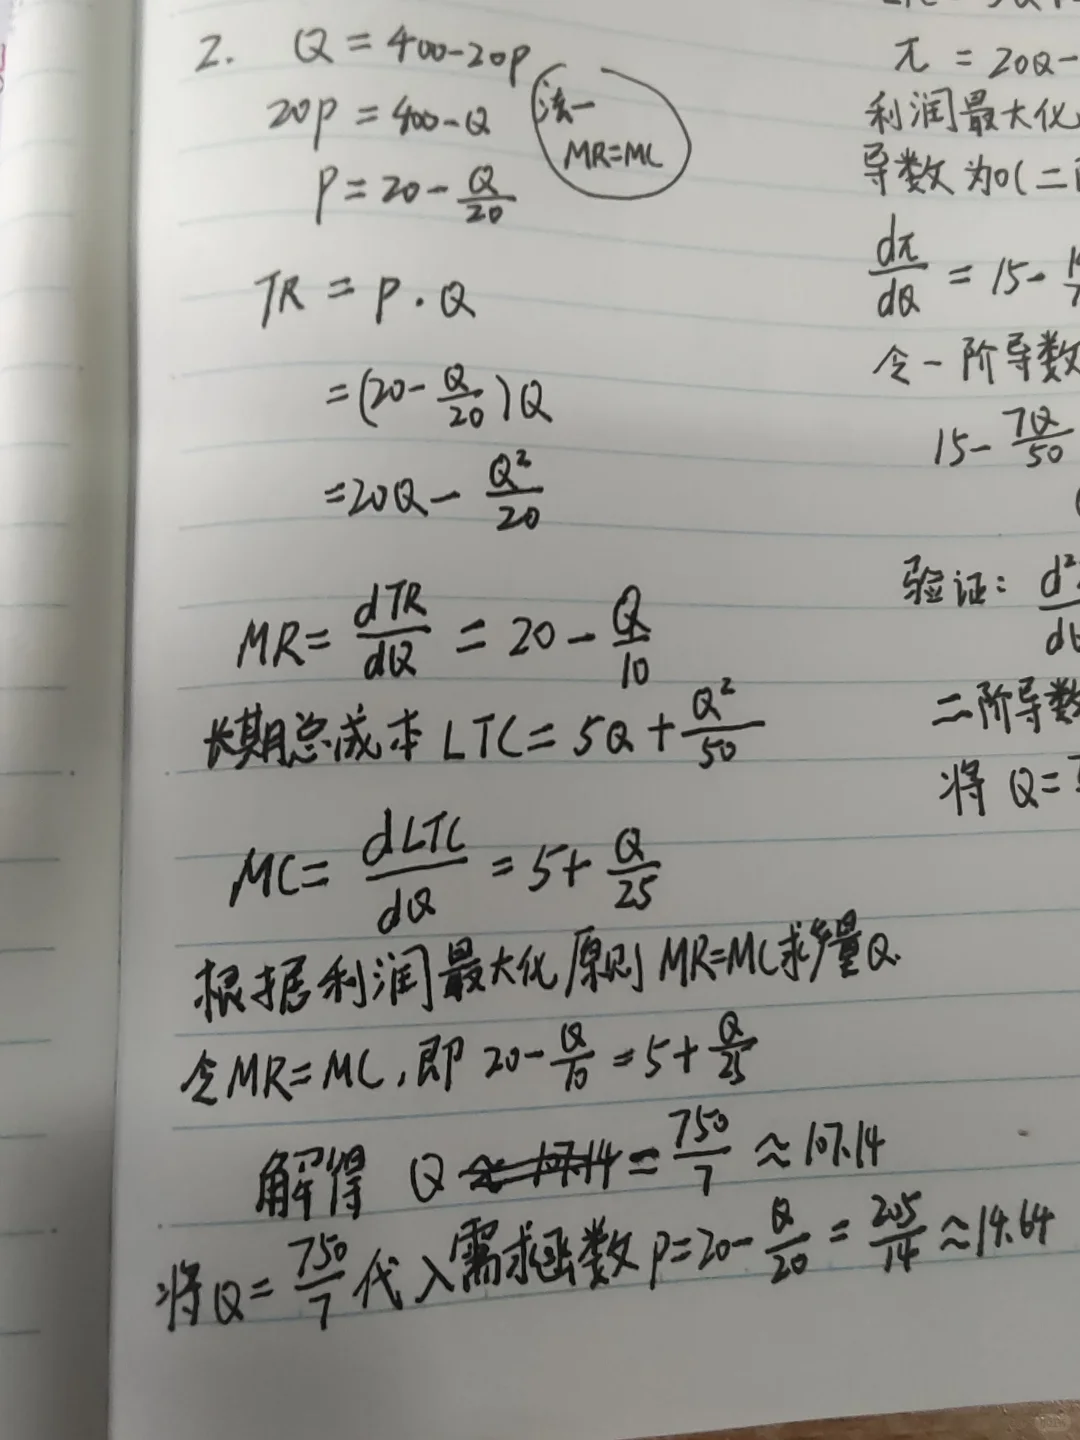 2. Q = 400-20P
20P = 400-Q
P = 20 - Q/20
法一
MR=MC
TR = P · Q
= (20 - Q/20)Q
= 20Q - Q²/20
MR = dTR/dQ = 20 - Q/10
长期总成本 LTC = 5Q + Q²/50
MC = dLTC/dQ = 5 + Q/25
根据利润最大化原则 MR=MC求产量Q.
令MR=MC,即 20 - Q/10 = 5 + Q/25
解得 Q = 750/7 ≈ 107.14
将Q = 750/7 代入需求函数 P = 20 - Q/20 = 205/14 ≈ 14.64
π = 20Q-
利润最大化
导数为0(二
dπ/dQ = 15-
令一阶导数
15 - 7Q/50
验证: d²
二阶导数
将 Q =